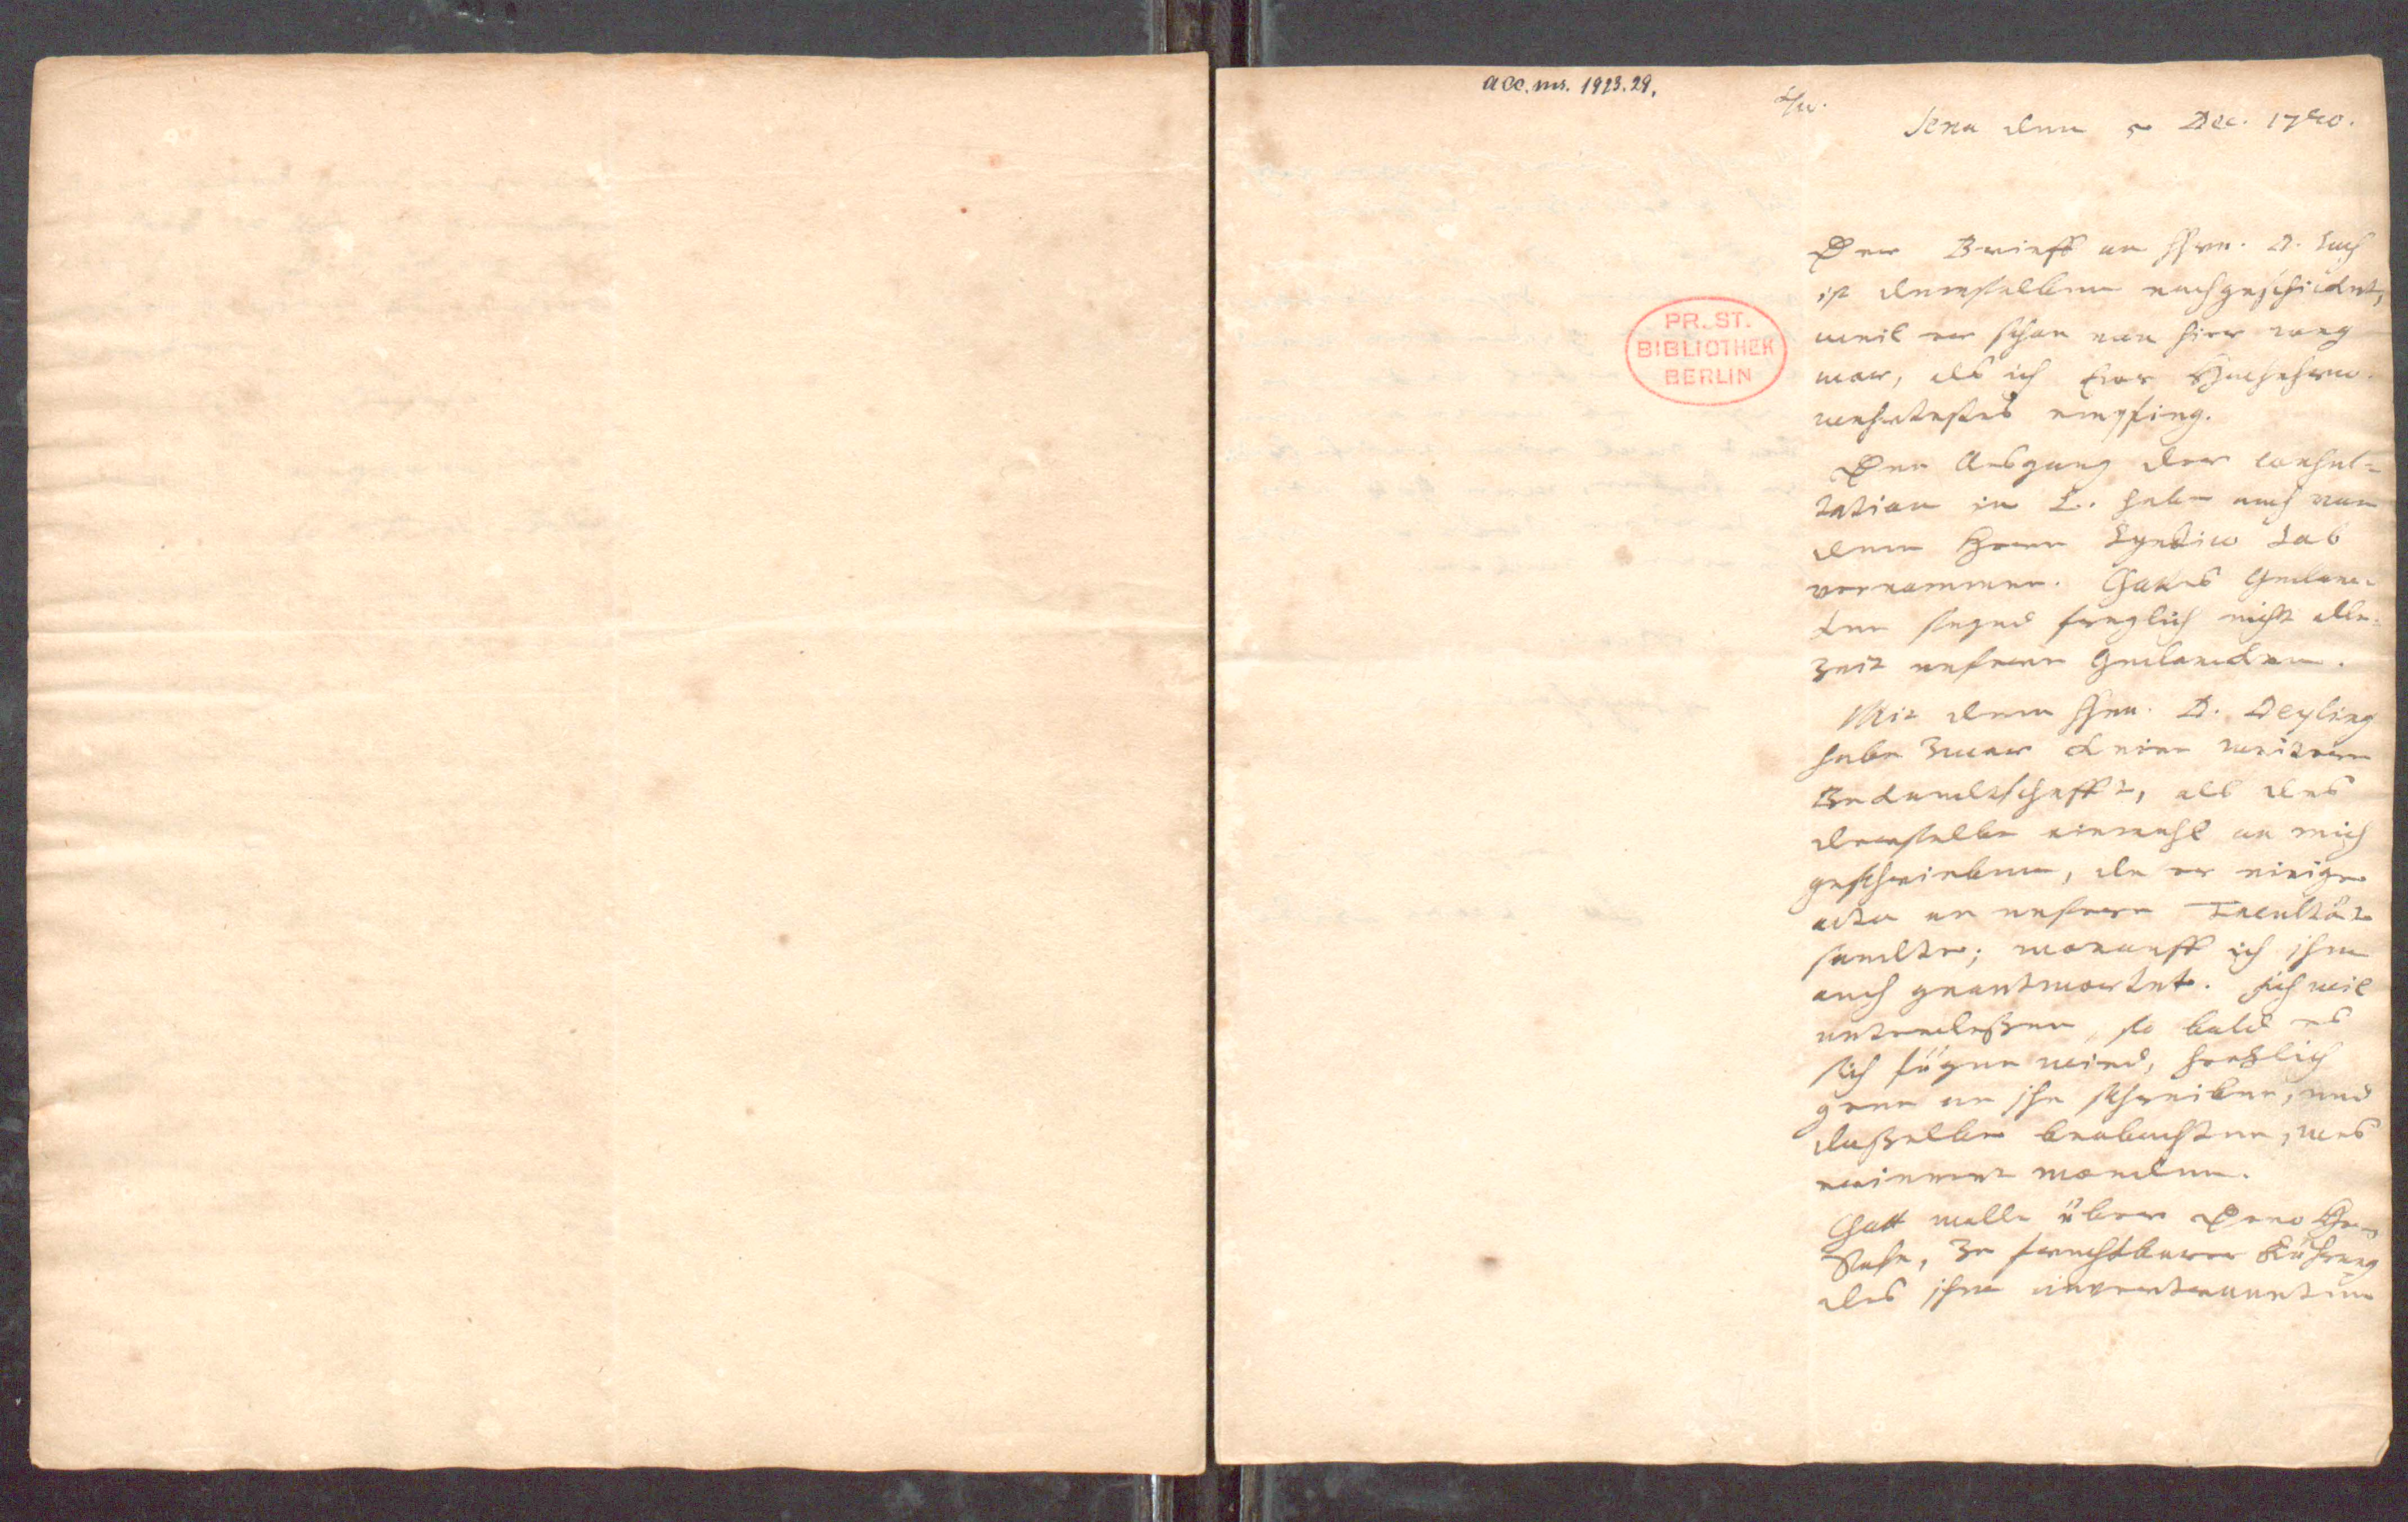 acc. ms. 1923.29.
Jena den 5 Dec. 1740.
Der Brieff an Hrn. D.
ist demselben nachgeschickt,
weil er schon von hier weg
war, als ich Hochehrw.
wehrtestes empfing.
PR. ST.
BIBLIOTHEK
BERLIN
Den Ausgang der consul-
tation in L. habe auch von
dem Herrn
vernommen. Gottes Gedanc-
ken seynd freylich nicht alle-
zeit unsere Gedancken.
Mit dem Hrn. D. Deyling
habe zwar keine weitere
Bekandtschafft, als das
derselbe einmahl an mich
geschrieben, da er einige
acta an unsere Facultät
sandte; worauff ich ihm
auch geantwortet. Ich wil
unterdessen, so bald es
sich fügen wird, hertzlich
gern an ihn schreiben, und
dasselbe beobachten, was
erinnert worden.
Gott walle über Dero
zu fruchtbarer Führung
des ihm anvertrauten